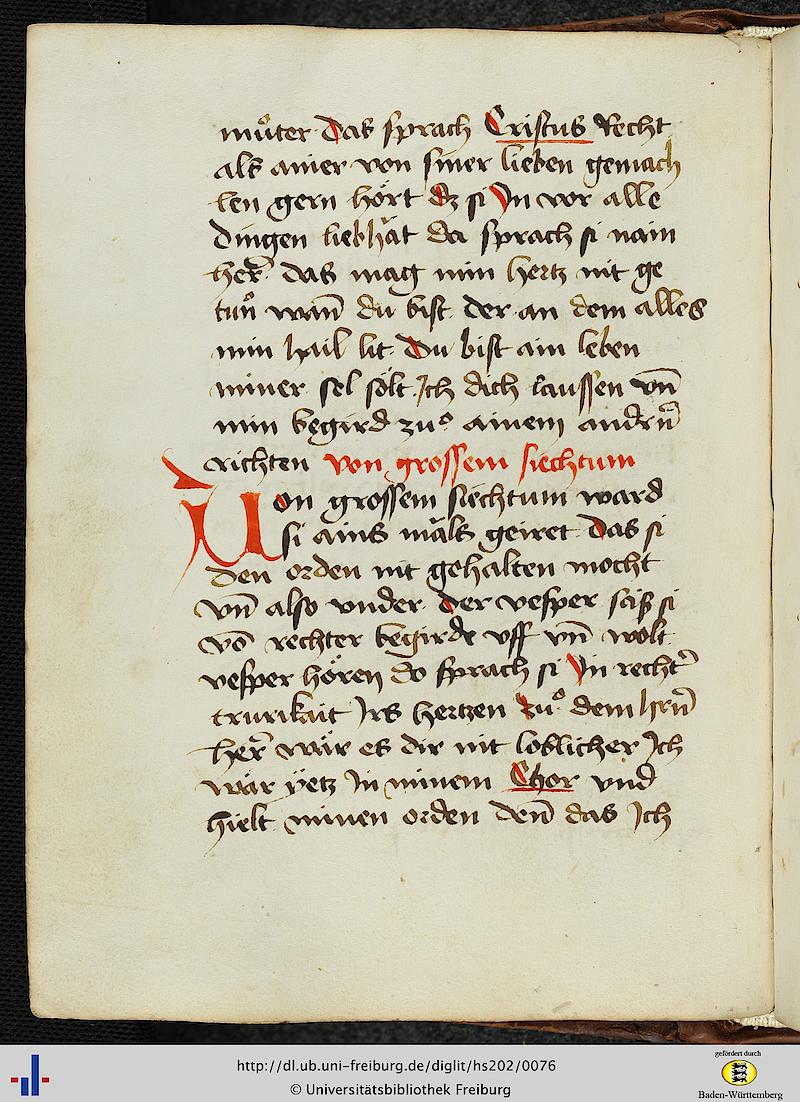 můter das sprach Cristus Recht
als ainer von siner lieben gemach
len gern hört dz si In vor alle
dingen liebhät da sprach si nain
her̄ das mag min hertz nit ge
tůn wan̄ du bist der an dem alles
min hail lit Du bist ain leben
miner sel sölt Ich dich laussen vn̄
min begird zuͦ ainem andrn̄
richten von grossem siechtum
Uon grossem siechtum ward
si ains mäls geiret das si
den orden nit gehalten mocht
vn̄ also vnder der vesper saß si
vō rechter begirde vff vn̄ wolt
vesper hören do sprach si In recht̄
trurikait Irs hertzen zuͦ dem hrn̄
her̄ wär es dir nit loblicher Ich
wär yetz In minem Chor vnd
hielt minen orden den̄ das Ich
http://dl.ub.uni-freiburg.de/diglit/hs202/0076
© Universitätsbibliothek Freiburg
gefördert durch
Baden-Württemberg